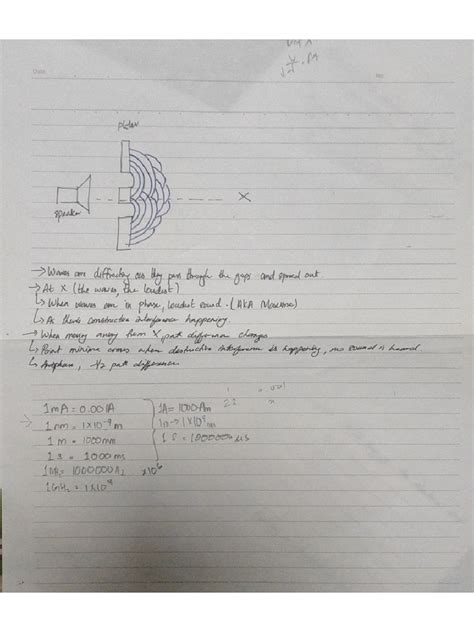 Date
No
plates
speaker
X
→ Waves are diffracting as they pass through the gaps and spread out.
→ At X (the waves, the loudest)
↳ When waves are in phase, loudest sound. (AKA Maxima)
↳ As there's constructive interference happening.
→ When moving away from X path difference changes
↳ Point minima occurs when destructive interference is happening, no sound is heard
↳ Antiphase, 1/2 path difference
1mA = 0.001A
1A = 1000
1nm = 1×10⁻⁹m
1m = 1000mm
1s = 1000000 μs
1s = 1000ms
= 1000000Hz
×10⁶
= 1×10⁹